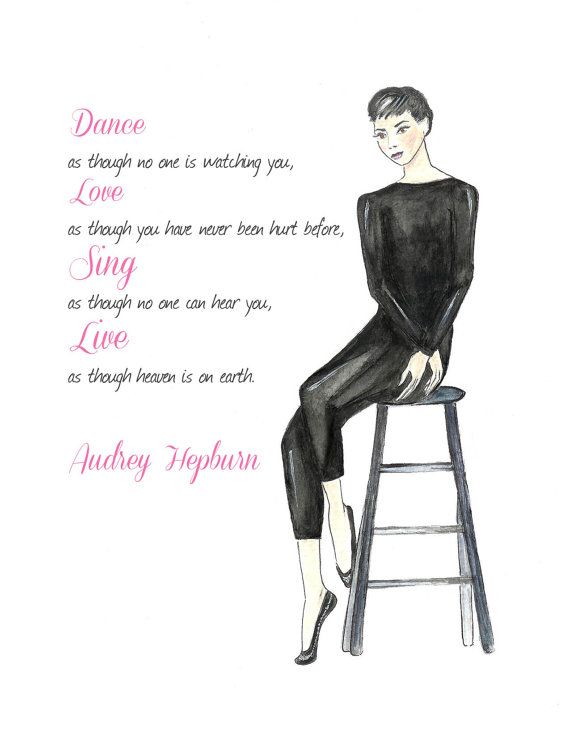 Dance
as though no one is watching you,
Love
as though you have never been hurt before,
Sing
as though no one can hear you,
Live
as though heaven is on earth.
Audrey Hepburn